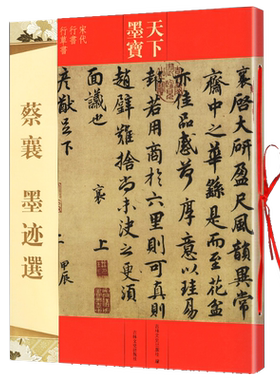 天下
墨寶
宋代
行書
行草書
蔡襄墨迹選
襄啓大研盈尺風韻異常
齋中之華繇是而至花盆
亦佳品感荷厚意以珪易
邵若用商於六里則可真則
趙璧難捨尚未決之更須
面議也 襄上
彥猷足下
甲辰
吉林文史出版社